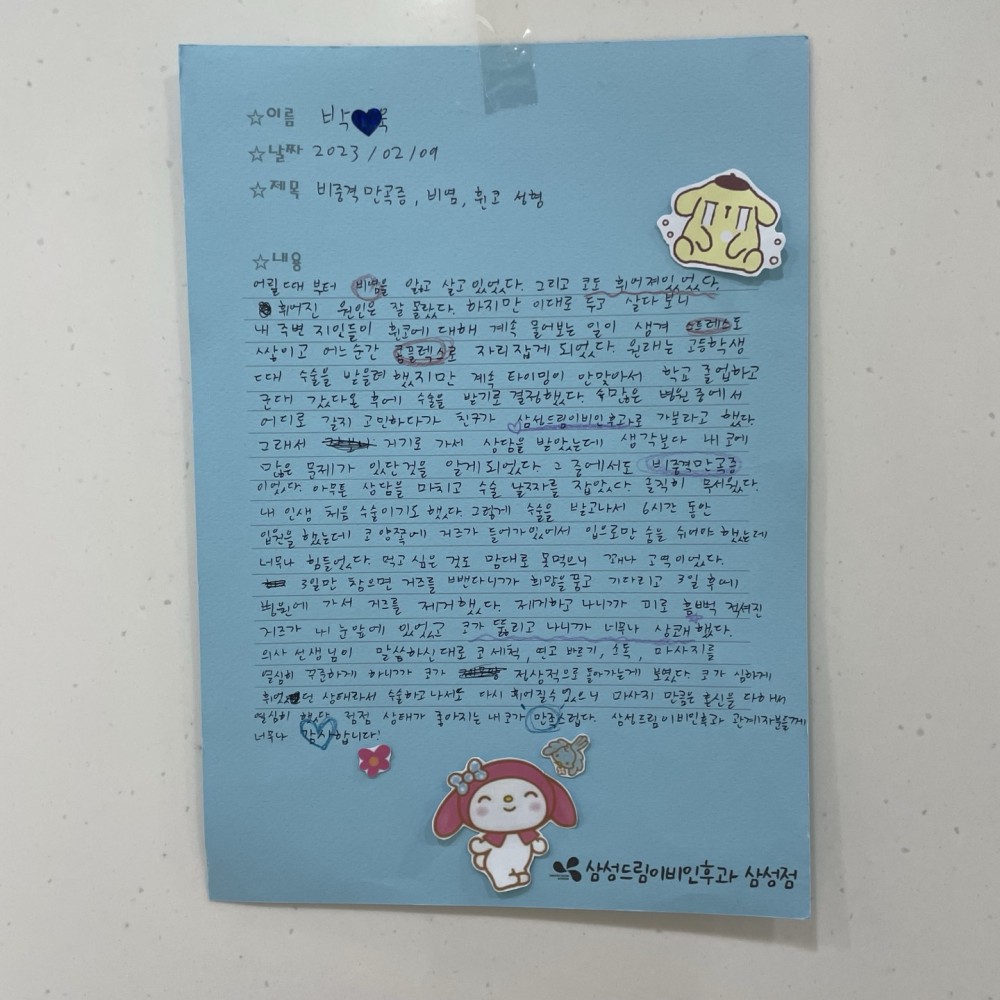 ☆이름 박
☆날짜 2023/02/09
☆제목 비중격만곡증, 비염, 휜코 성형
☆내용
어릴때 부터 비염을 앓고 살고있었다. 그리고 코도 휘어져있었다.
휘어진 원인은 잘 몰랐다. 하지만 이대로 두고 살다보니
내 주변 지인들이 휜코에 대해 계속 물어보는 일이 생겨 스트레스도
쌓이고 어느순간 콤플렉스로 자리잡게 되었다. 원래는 고등학생
때 수술을 받을려 했지만 계속 타이밍이 안맞아서 학교 졸업하고
군대 갔다온 후에 수술을 받기로 결정했다. 수많은 병원 중에서
어디로 갈지 고민하다가 친구가 삼성드림이비인후과로 가볼라고 했다.
그래서 거기로 가서 상담을 받았는데 생각보다 내 코에
많은 문제가 있단것을 알게되었다. 그 중에서도 비중격만곡증
이었다. 아무튼 상담을 마치고 수술 날짜를 잡았다. 솔직히 무서웠다.
내 인생 처음 수술이기도 했다. 그렇게 수술을 받고나서 6시간 동안
입원을 했는데 코 양쪽에 거즈가 들어가있어서 입으로만 숨을 쉬어야 했는데
너무나 힘들었다. 먹고 싶은 것도 맘대로 못먹으니 꽤나 고역이었다.
3일만 참으면 거즈를 뺀다니까 희망을 품고 기다리고 3일 후에
병원에 가서 거즈를 제거했다. 제거하고 나니까 피로 흠뻑 적셔진
거즈가 내 눈앞에 있었고 코가 뚫리고 나니까 너무나 상쾌했다.
의사 선생님이 말씀하신대로 코세척, 연고 바르기, 소독, 마사지를
열심히 꾸준하게 하니까 코가 정상적으로 돌아가는게 보였다. 코가 심하게
휘었던 상태라서 수술하고 나서도 다시 휘어질수 있으니 마사지 만큼은 혼신을 다해
열심히 했다. 점점 상태가 좋아지는 내 코가 만족스럽다. 삼성드림이비인후과 관계자분들께
너무나 감사합니다!
삼성드림이비인후과 삼성점